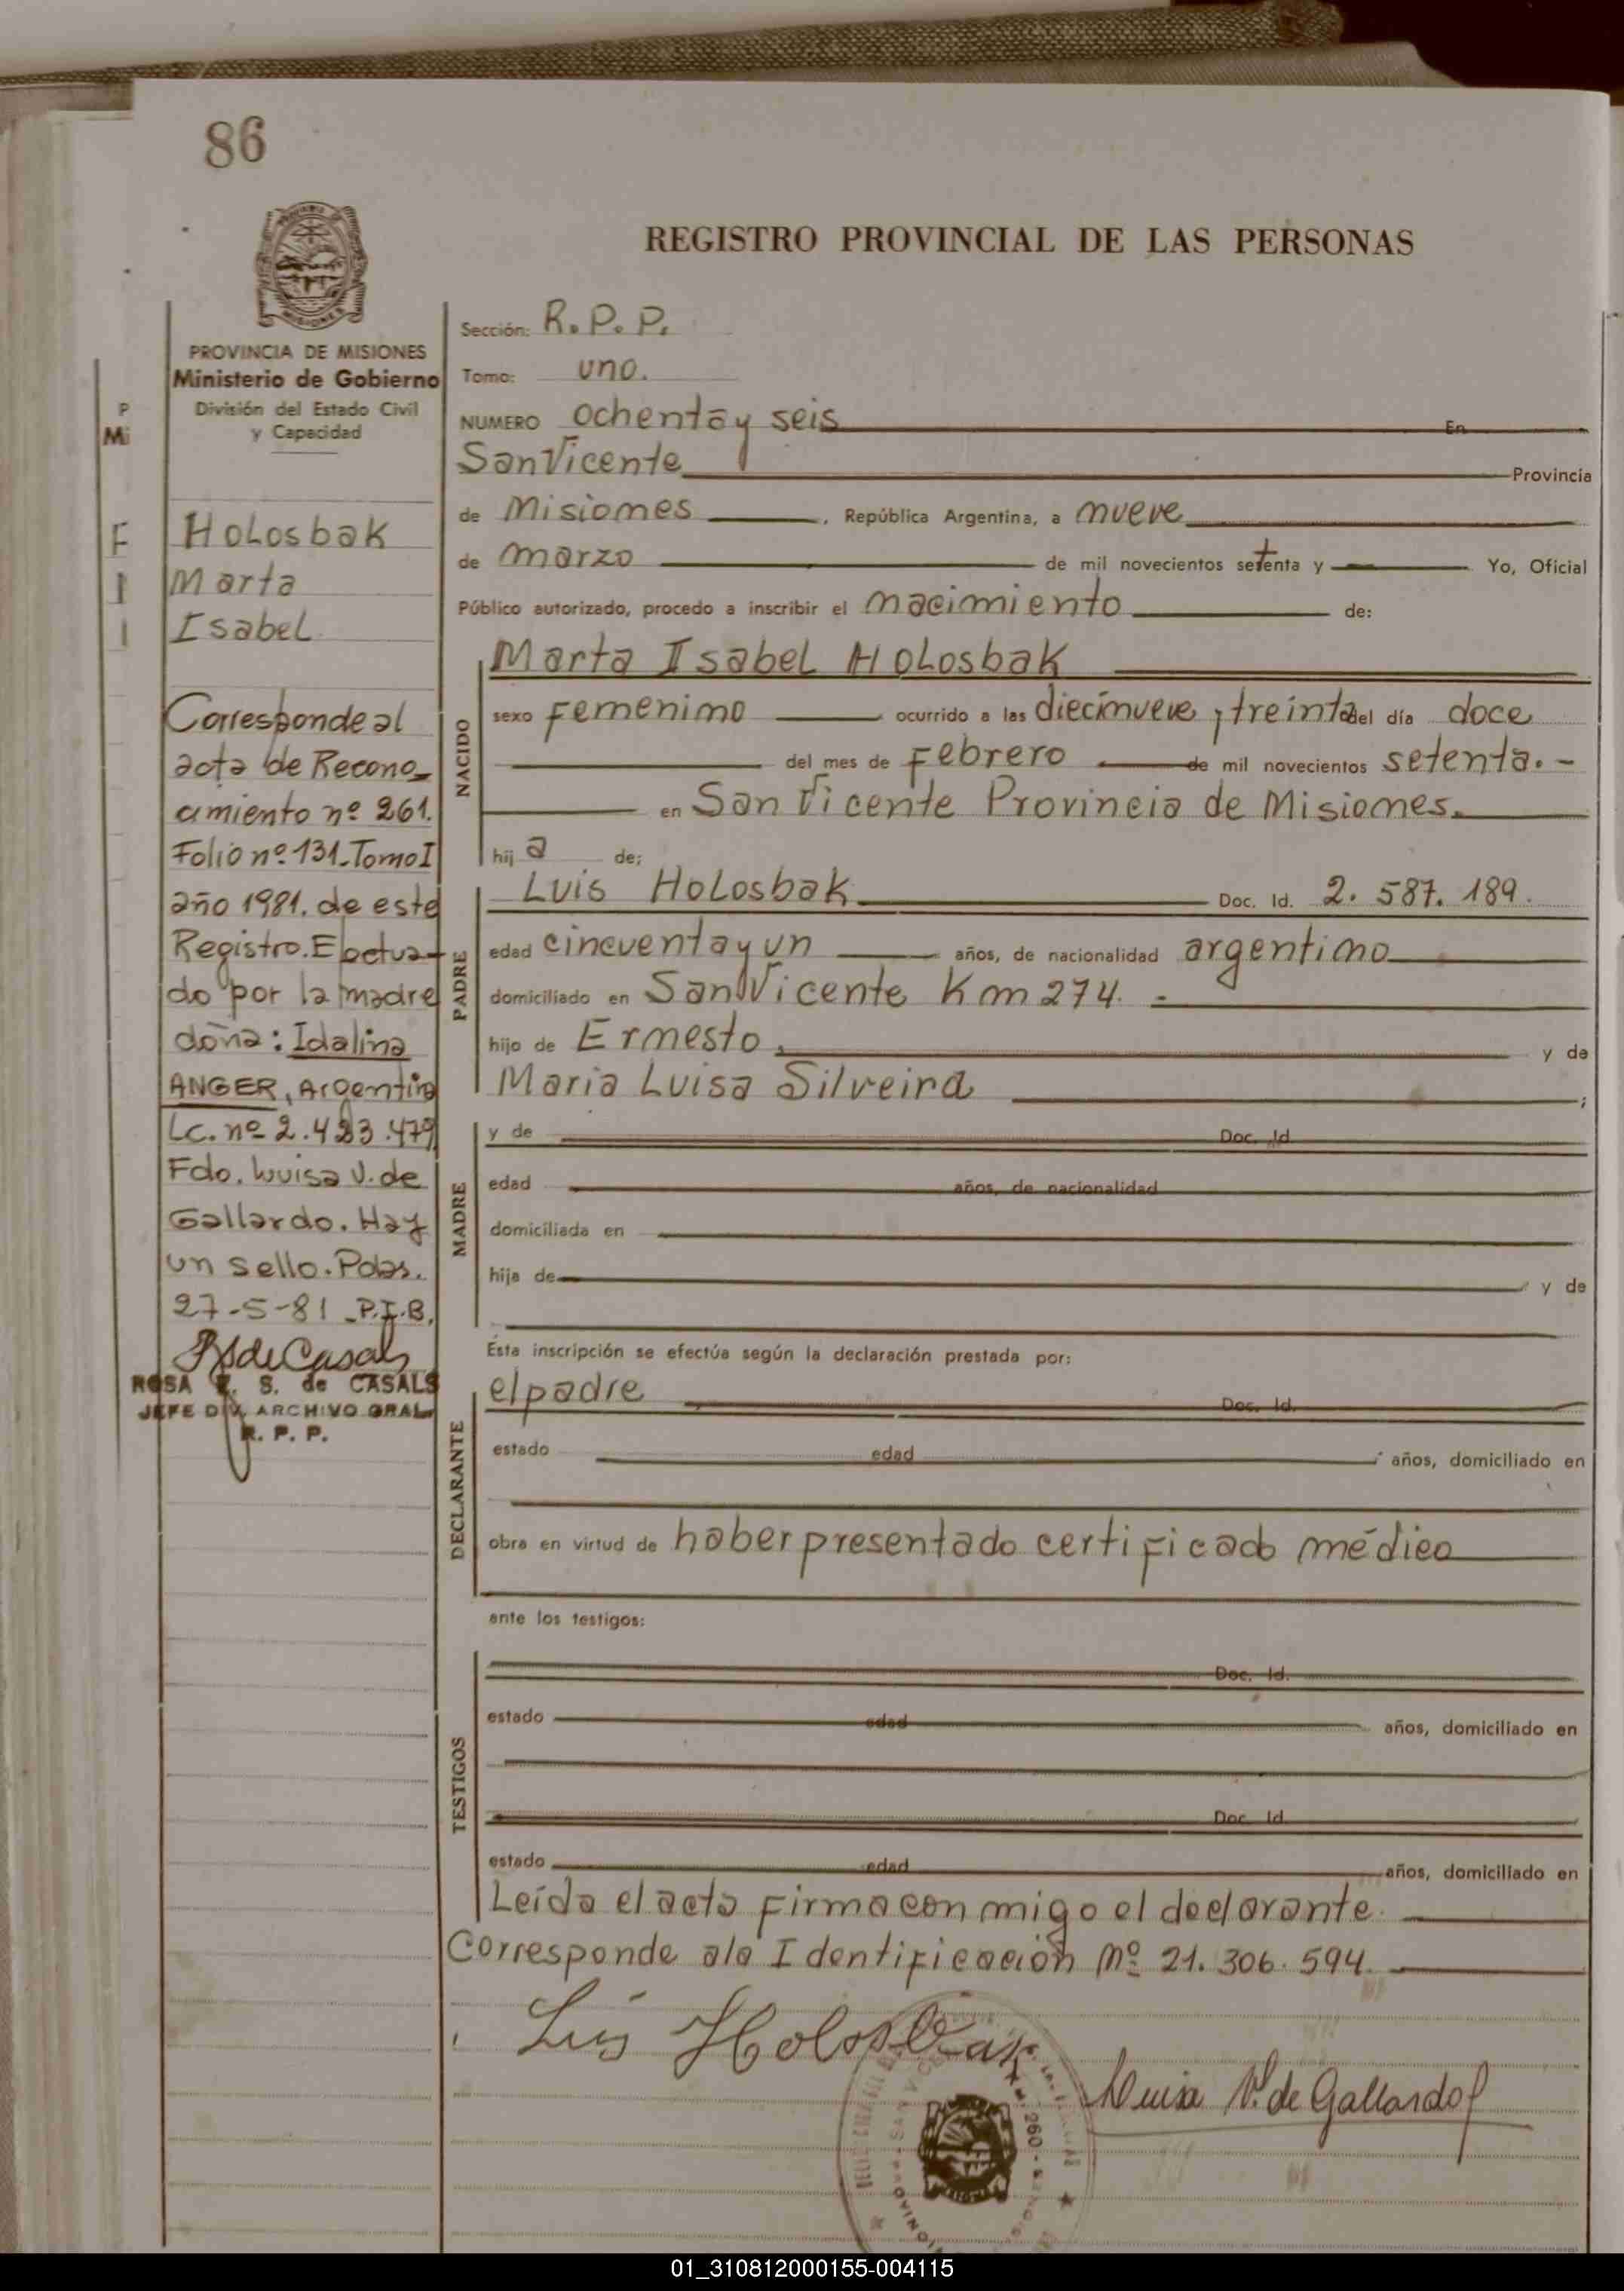 86
REGISTRO PROVINCIAL DE LAS PERSONAS
PROVINCIA DE MISIONES
Ministerio de Gobierno
División del Estado Civil
y Capacidad
Holosbak
Marta
Isabel.
Corresponde al
acta de Recono_
cimiento nº 261.
Folio nº 131_Tomo I
año 1981. de este
Registro. Efectua-
do por la madre
doña: Idalina
ANGER, Argentina
Lc. nº 2.423.479
Fdo. Luisa V. de
Gallardo. Hay
un sello. Pdas.
27-5-81_P.I.B.
RSdeCasals
ROSA S. de CASALS
JEFE DIV. ARCHIVO GRAL.
R. P. P.
P
Mi
F
I
I
Sección: R. P. P.
Tomo: uno.
NUMERO ochenta y seis En
San Vicente Provincia
de Misiones , República Argentina, a nueve
de marzo de mil novecientos setenta y Yo, Oficial
Público autorizado, procedo a inscribir el nacimiento de:
NACIDO
Marta Isabel Holosbak
sexo Femenino ocurrido a las diecinueve y treinta del día doce
del mes de Febrero de mil novecientos setenta.-
en San Vicente Provincia de Misiones.
hij a de:
PADRE
Luis Holosbak Doc. Id. 2. 587. 189.
edad cincuenta y un años, de nacionalidad argentino
domiciliado en San Vicente Km 274. -
hijo de Ernesto y de
Maria Luisa Silveira ;
MADRE
y de Doc. Id
edad años, de nacionalidad
domiciliada en
hija de y de
Esta inscripción se efectúa según la declaración prestada por:
DECLARANTE
el padre Doc. Id.
estado edad años, domiciliado en
obra en virtud de haber presentado certificado médico
ante los testigos:
TESTIGOS
Doc. Id.
estado edad años, domiciliado en
Doc. Id
estado edad años, domiciliado en
Leída el acta firma con migo el declarante.
Corresponde a la Identificación Nº 21. 306. 594.
Luis Holosbak
Luisa V. de Gallardo
01_310812000155-004115